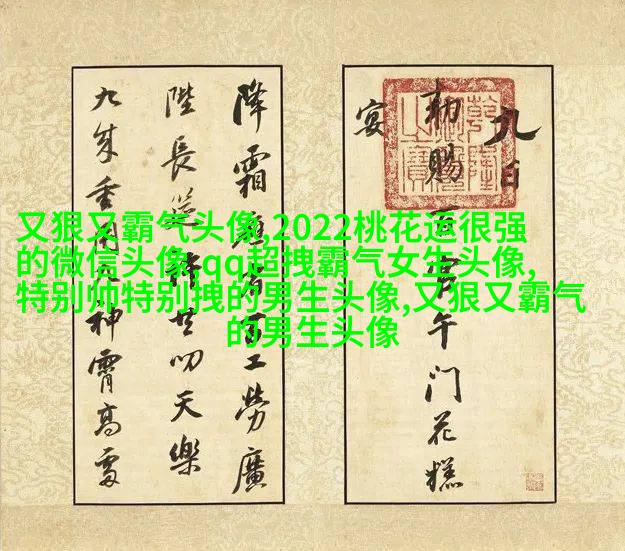 又狠又霸气头像,2022桃花运很强
的微信头像,qq超拽霸气女生头像,
特别帅特别拽的男生头像,又狠又霸气
的男生头像
九日
勅賜百官午門花糕
宴
降霜 百工勞廣
陛長筵 共叨天樂
九成重 神霄高
乾隆 之寶